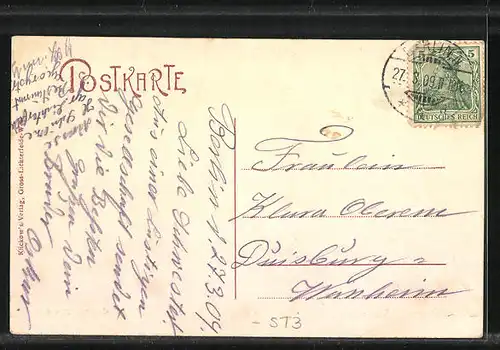 POSTKARTE
5
DEUTSCHES REICH
BERLIN
27.3.09
Fräulein
Klara Oberem
Duisburg =
Wanheim
Berlin d. 27.3.09.
Liebe Schwester!
Aus einer lustigen
Gesellschaft sendet
Dir die besten
Grüßen Dein
Bruder
Klickow's Verlag, Gross-Lichterfelde-W.
- ST3